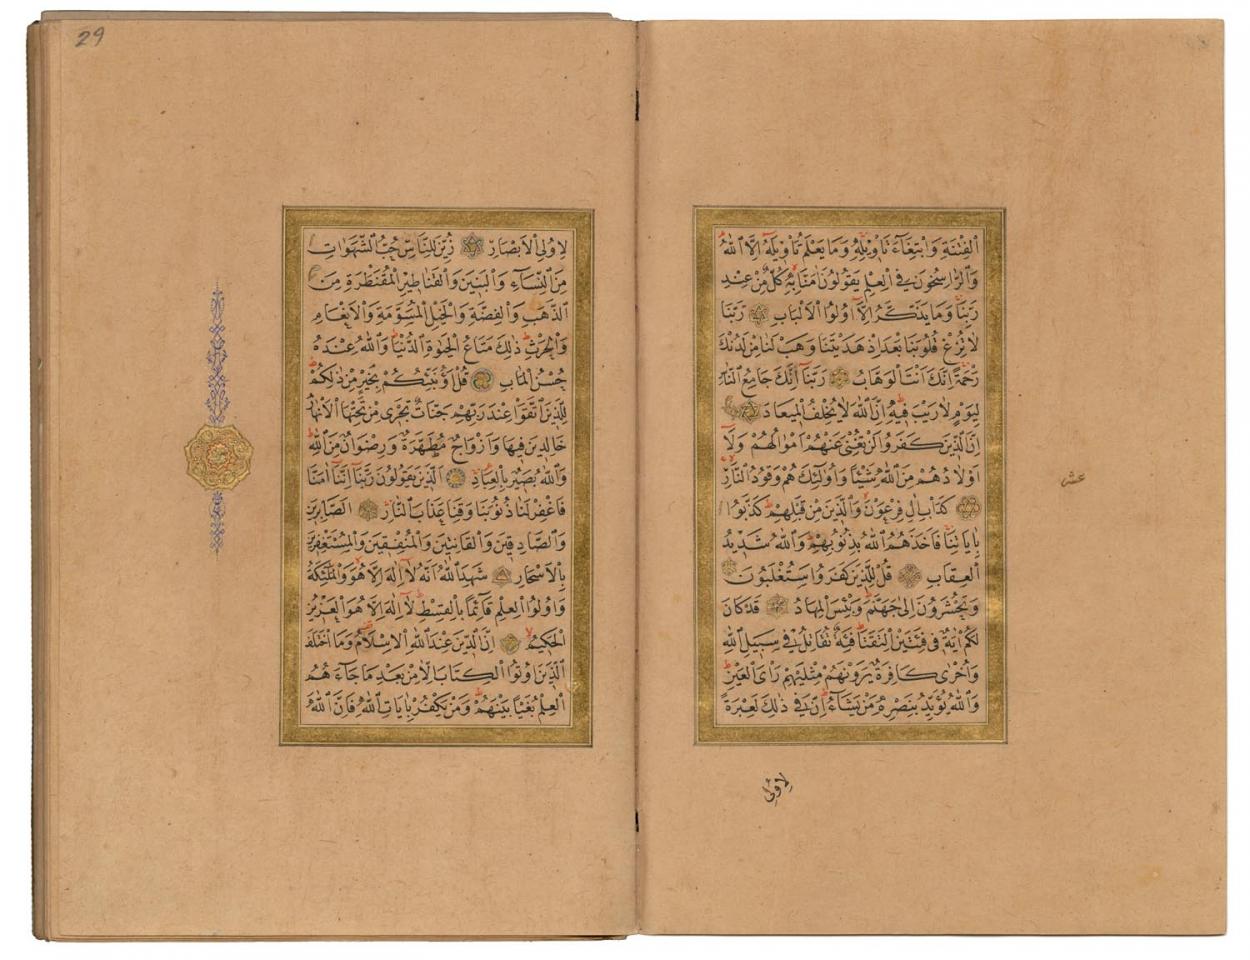 الْفِتْنَةِ وَابْتِغَاءَ تَاْوٖيلِهٖ وَمَا يَعْلَمُ تَاْوٖيلَهُ اِلَّا اللّٰهُ
وَالرَّاسِخُونَ فِي الْعِلْمِ يَقُولُونَ اٰمَنَّا بِهٖ كُلٌّ مِنْ عِنْدِ
رَبِّنَا وَمَا يَذَّكَّرُ اِلَّا اُولُوا الْاَلْبَابِ رَبَّنَا
لَا تُزِغْ قُلُوبَنَا بَعْدَ اِذْ هَدَيْتَنَا وَهَبْ لَنَا مِنْ لَدُنْكَ
رَحْمَةً اِنَّكَ اَنْتَ الْوَهَّابُ رَبَّنَا اِنَّكَ جَامِعُ النَّاسِ
لِيَوْمٍ لَا رَيْبَ فٖيهِ اِنَّ اللّٰهَ لَا يُخْلِفُ الْمٖيعَادَ
اِنَّ الَّذٖينَ كَفَرُوا لَنْ تُغْنِيَ عَنْهُمْ اَمْوَالُهُمْ وَلَا
اَوْلَادُهُمْ مِنَ اللّٰهِ شَيْئًا وَاُولٰئِكَ هُمْ وَقُودُ النَّارِ
كَدَاْبِ اٰلِ فِرْعَوْنَ وَالَّذٖينَ مِنْ قَبْلِهِمْ كَذَّبُوا
بِاٰيَاتِنَا فَاَخَذَهُمُ اللّٰهُ بِذُنُوبِهِمْ وَاللّٰهُ شَدٖيدُ
الْعِقَابِ قُلْ لِلَّذٖينَ كَفَرُوا سَتُغْلَبُونَ
وَتُحْشَرُونَ اِلٰى جَهَنَّمَ وَبِئْسَ الْمِهَادُ قَدْ كَانَ
لَكُمْ اٰيَةٌ فٖي فِئَتَيْنِ الْتَقَتَا فِئَةٌ تُقَاتِلُ فٖي سَبٖيلِ اللّٰهِ
وَاُخْرٰى كَافِرَةٌ يَرَوْنَهُمْ مِثْلَيْهِمْ رَاْيَ الْعَيْنِ
وَاللّٰهُ يُؤَيِّدُ بِنَصْرِهٖ مَنْ يَشَاءُ اِنَّ فٖي ذٰلِكَ لَعِبْرَةً
عشر
لِاُولِي
29
لِاُولِي الْاَبْصَارِ زُيِّنَ لِلنَّاسِ حُبُّ الشَّهَوَاتِ
مِنَ النِّسَاءِ وَالْبَنٖينَ وَالْقَنَاطٖيرِ الْمُقَنْطَرَةِ مِنَ
الذَّهَبِ وَالْفِضَّةِ وَالْخَيْلِ الْمُسَوَّمَةِ وَالْاَنْعَامِ
وَالْحَرْثِ ذٰلِكَ مَتَاعُ الْحَيٰوةِ الدُّنْيَا وَاللّٰهُ عِنْدَهُ
حُسْنُ الْمَاٰبِ قُلْ اَؤُنَبِّئُكُمْ بِخَيْرٍ مِنْ ذٰلِكُمْ
لِلَّذٖينَ اتَّقَوْا عِنْدَ رَبِّهِمْ جَنَّاتٌ تَجْرٖي مِنْ تَحْتِهَا الْاَنْهَارُ
خَالِدٖينَ فٖيهَا وَاَزْوَاجٌ مُطَهَّرَةٌ وَرِضْوَانٌ مِنَ اللّٰهِ
وَاللّٰهُ بَصٖيرٌ بِالْعِبَادِ اَلَّذٖينَ يَقُولُونَ رَبَّنَا اِنَّنَا اٰمَنَّا
فَاغْفِرْ لَنَا ذُنُوبَنَا وَقِنَا عَذَابَ النَّارِ اَلصَّابِرٖينَ
وَالصَّادِقٖينَ وَالْقَانِتٖينَ وَالْمُنْفِقٖينَ وَالْمُسْتَغْفِرٖينَ
بِالْاَسْحَارِ شَهِدَ اللّٰهُ اَنَّهُ لَا اِلٰهَ اِلَّا هُوَ وَالْمَلٰئِكَةُ
وَاُولُوا الْعِلْمِ قَائِمًا بِالْقِسْطِ لَا اِلٰهَ اِلَّا هُوَ الْعَزٖيزُ
الْحَكٖيمُ اِنَّ الدّٖينَ عِنْدَ اللّٰهِ الْاِسْلَامُ وَمَا اخْتَلَفَ
الَّذٖينَ اُوتُوا الْكِتَابَ اِلَّا مِنْ بَعْدِ مَا جَاءَهُمُ
الْعِلْمُ بَغْيًا بَيْنَهُمْ وَمَنْ يَكْفُرْ بِاٰيَاتِ اللّٰهِ فَاِنَّ اللّٰهَ